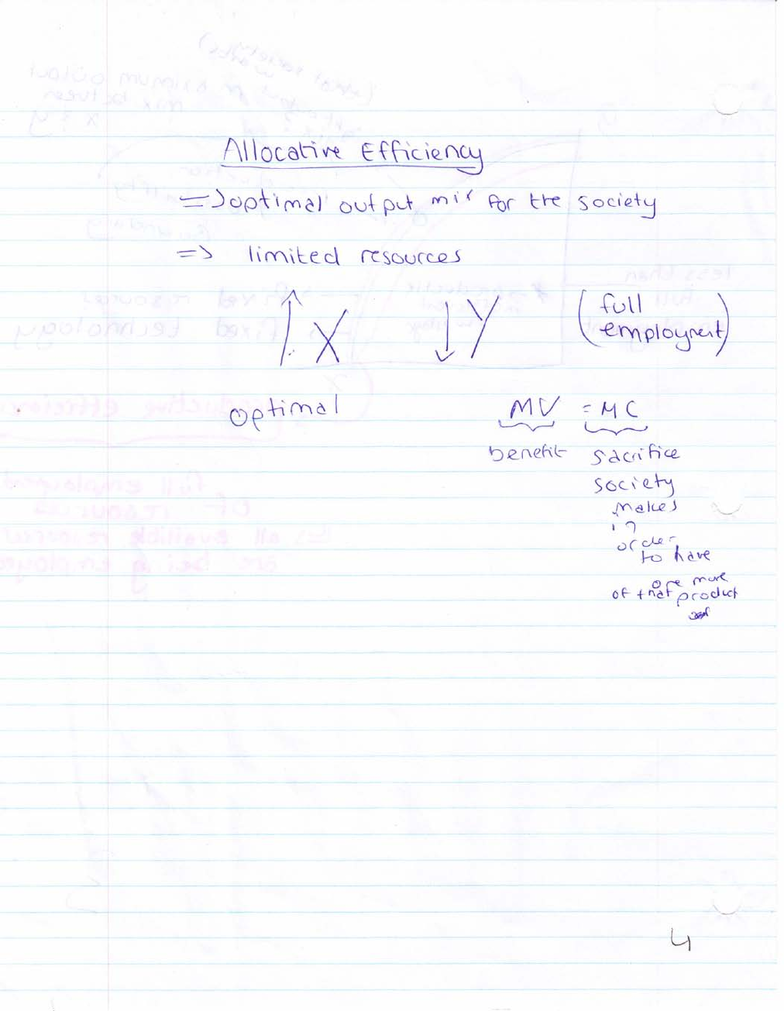 Allocative Efficiency
=> optimal output mix for the society
=> limited resources
↑ X ↓ Y (full employment)
optimal MV = MC
benefit sacrifice
society
makes
in
order
to have
one more
of that product
4